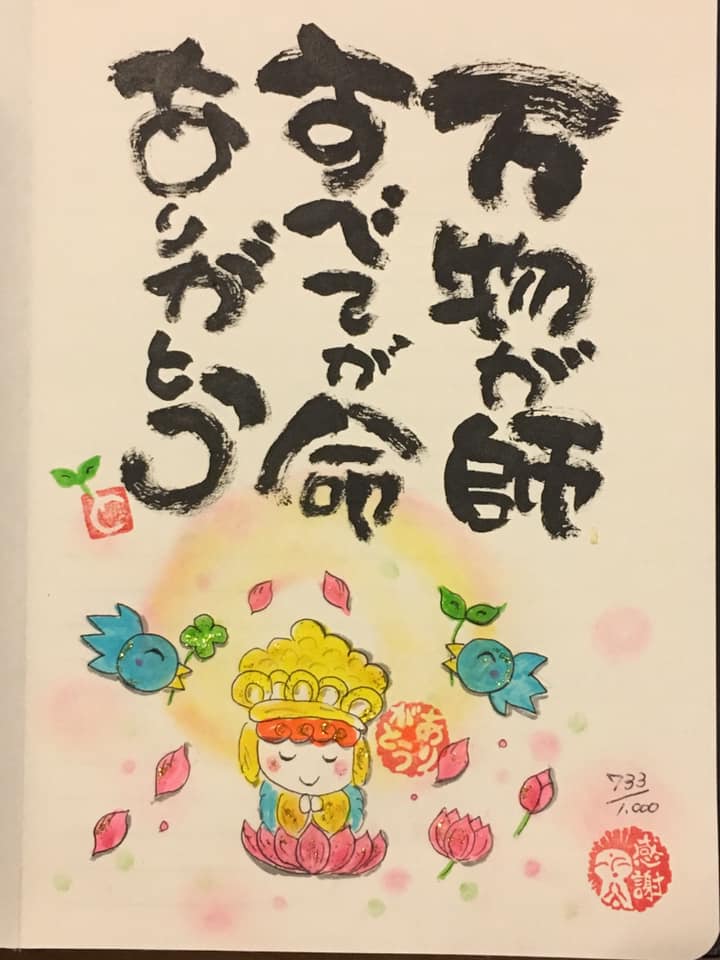 万物が師
すべてが命
ありがとう
ありがとう
733/1.000
感謝